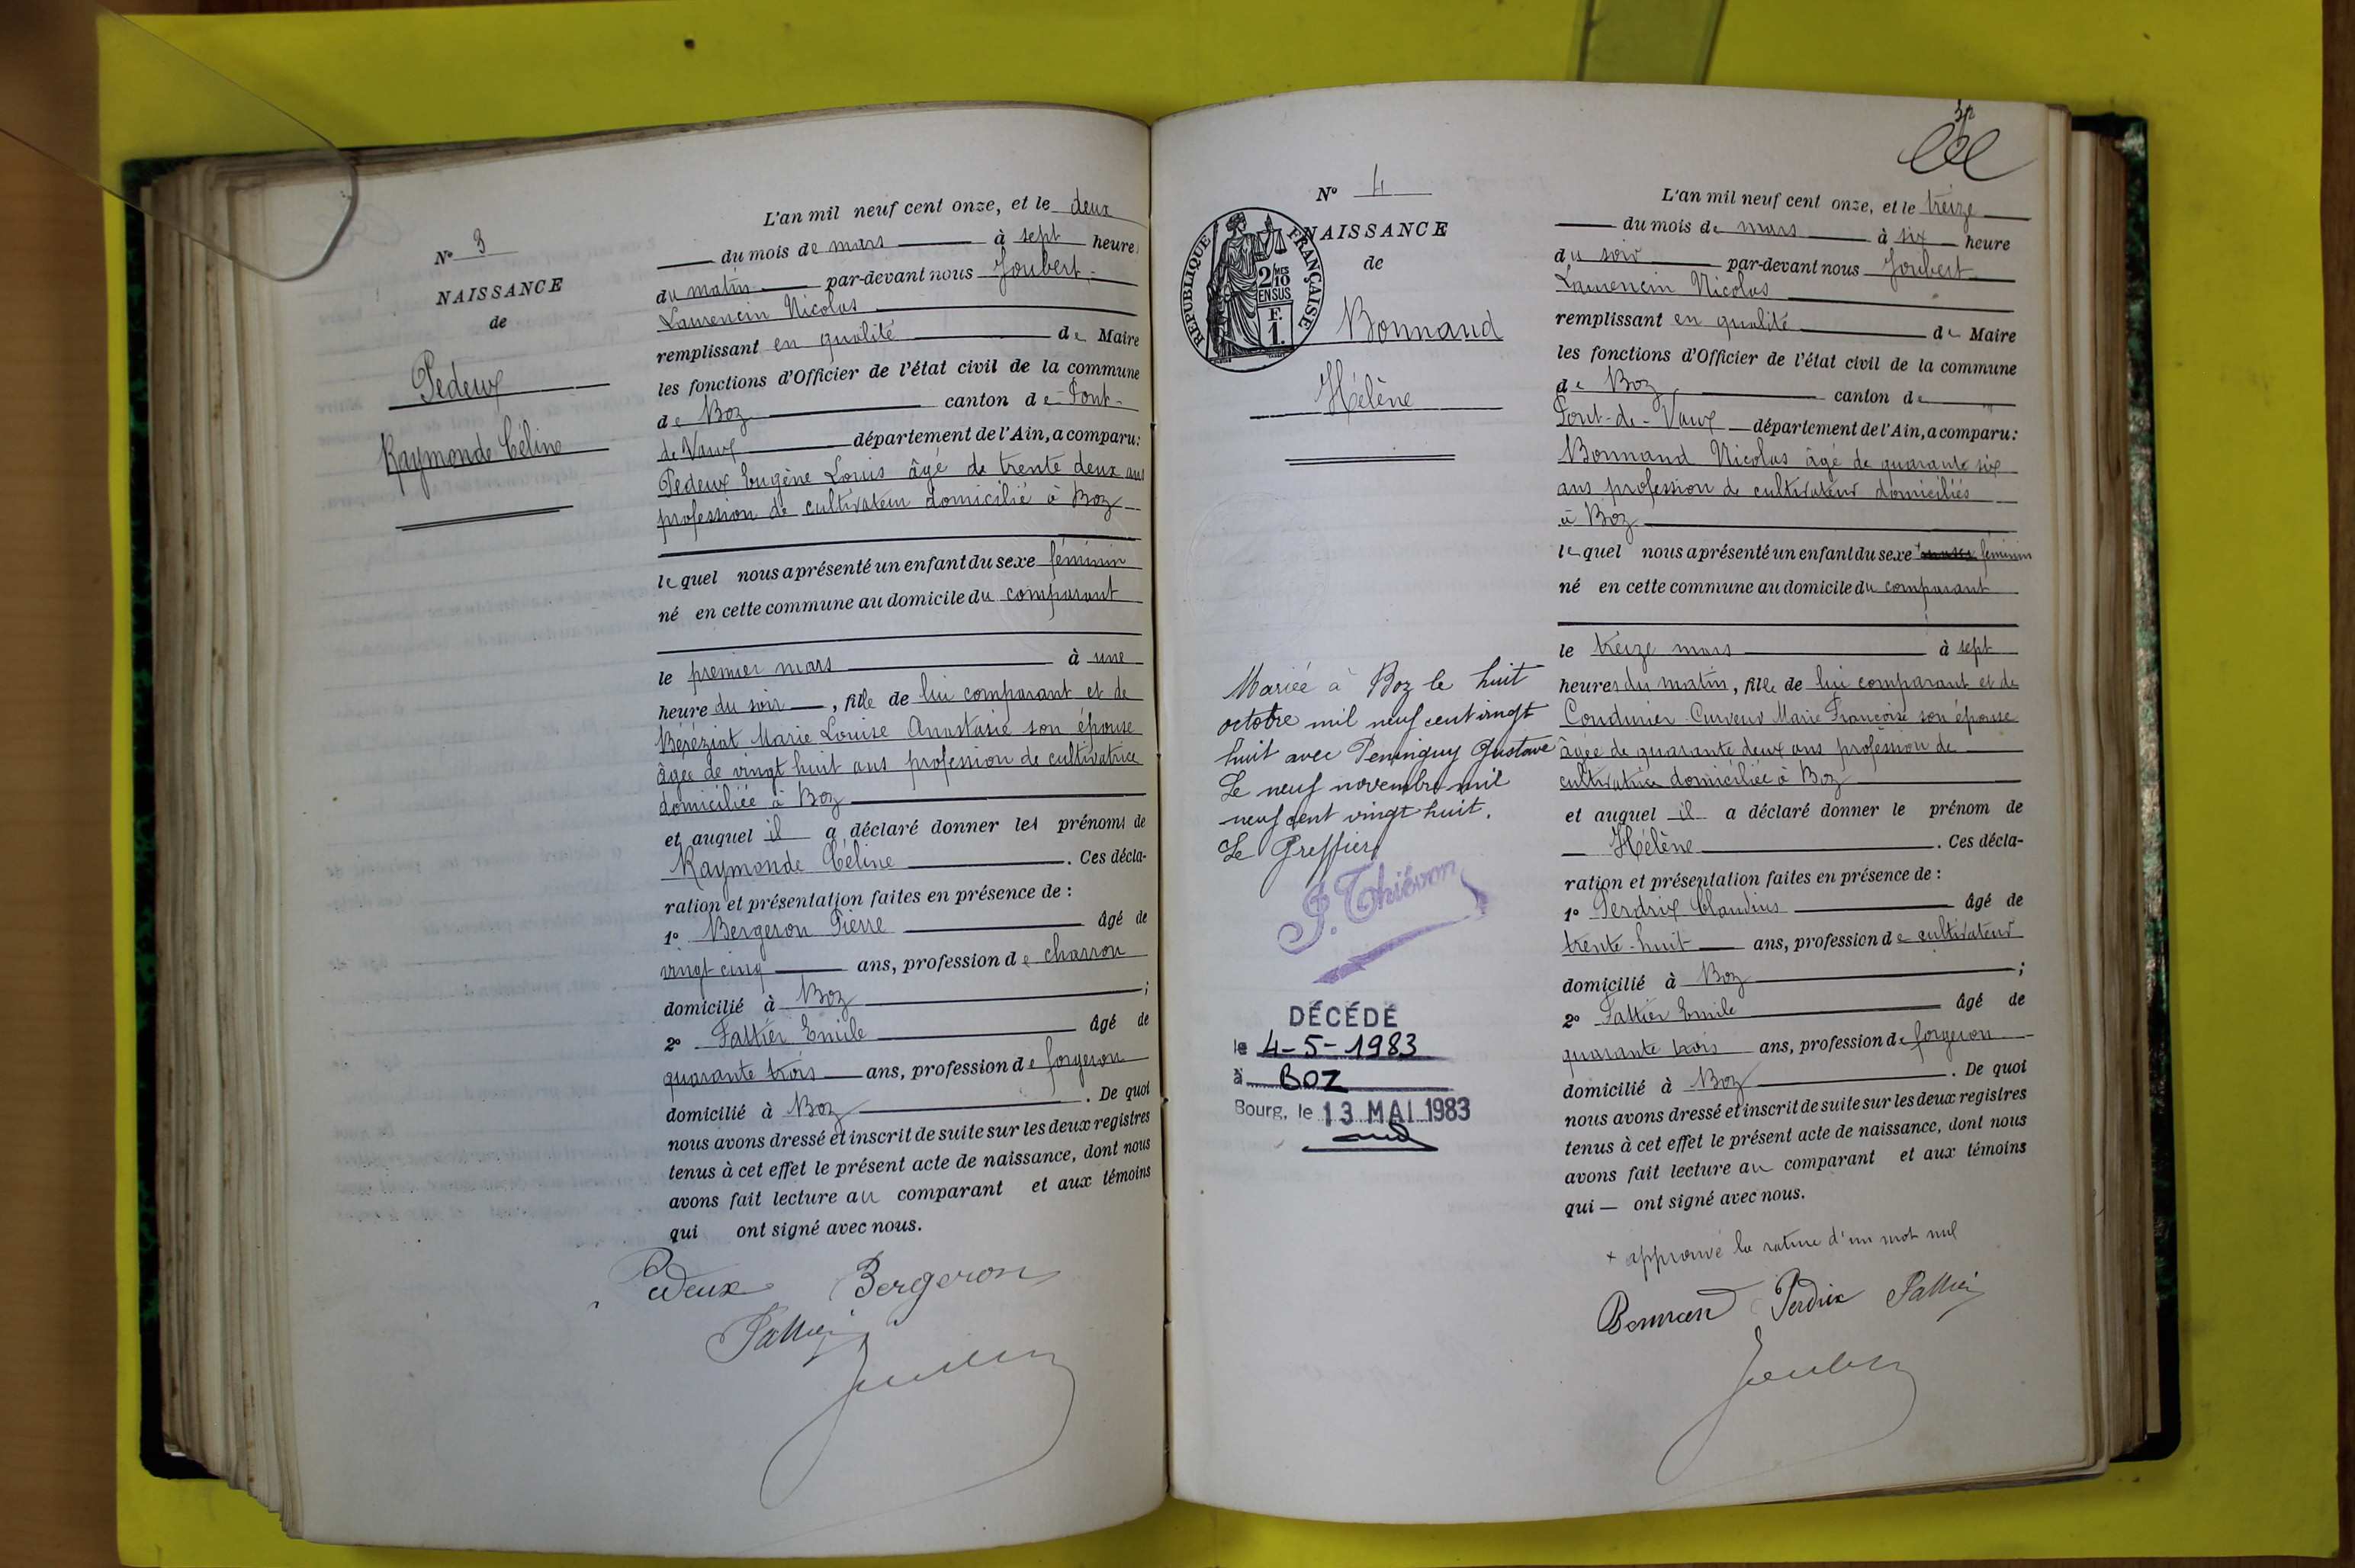 N° 3
NAISSANCE
de
Pedeux
Raymonde Céline
L'an mil neuf cent onze, et le deux
du mois de mars à sept heures
du matin par-devant nous Joubert
Laurencin Nicolas
remplissant en qualité de Maire
les fonctions d'Officier de l'état civil de la commune
de Boz canton de Pont-
de Vaux département de l'Ain, a comparu:
Pedeux Eugène Louis âgé de trente deux ans
profession de cultivateur domicilié à Boz
lequel nous a présenté un enfant du sexe féminin
né en cette commune au domicile du comparant
le premier mars à une
heure du soir, fille de lui comparant et de
Beréziat Marie Louise Anastasie son épouse
âgée de vingt huit ans profession de cultivatrice
domiciliée à Boz
et auquel il a déclaré donner les prénoms de
Raymonde Céline. Ces décla-
ration et présentation faites en présence de :
1° Bergeron Pierre âgé de
vingt cinq ans, profession de charron
domicilié à Boz ;
2° Pattier Emile âgé de
quarante trois ans, profession de forgeron
domicilié à Boz. De quoi
nous avons dressé et inscrit de suite sur les deux registres
tenus à cet effet le présent acte de naissance, dont nous
avons fait lecture au comparant et aux témoins
qui ont signé avec nous.
Pedeux Bergeron
Pattier
Joubert
N° 4
NAISSANCE
de
RÉPUBLIQUE FRANÇAISE
2/10 MES
EN SUS
F.
1.
Bonnand
Hélène
Mariée à Boz le huit
octobre mil neuf cent vingt
huit avec Penninguy Gustave
Le neuf novembre mil
neuf cent vingt huit.
Le Greffier,
J. Thiévon
DÉCÉDÉ
le 4-5-1983
à BOZ
Bourg, le 13 MAI 1983
L'an mil neuf cent onze, et le treize
du mois de mars à six heure
du soir par-devant nous Joubert
Laurencin Nicolas
remplissant en qualité de Maire
les fonctions d'Officier de l'état civil de la commune
de Boz canton de
Pont-de-Vaux département de l'Ain, a comparu:
Bonnand Nicolas âgé de quarante six
ans profession de cultivateur domiciliés
à Boz
lequel nous a présenté un enfant du sexe féminin
né en cette commune au domicile du comparant
le treize mars à sept
heures du matin, fille de lui comparant et de
Condurier-Curveur Marie Françoise son épouse
âgée de quarante deux ans profession de
cultivatrice domiciliée à Boz
et auquel il a déclaré donner le prénom de
Hélène. Ces décla-
ration et présentation faites en présence de :
1° Perdrix Claudius âgé de
trente-huit ans, profession de cultivateur
domicilié à Boz ;
2° Pattier Emile âgé de
quarante trois ans, profession de forgeron
domicilié à Boz. De quoi
nous avons dressé et inscrit de suite sur les deux registres
tenus à cet effet le présent acte de naissance, dont nous
avons fait lecture au comparant et aux témoins
qui — ont signé avec nous.
+ approuvé la rature d'un mot nul
Bonnand Perdrix Pattier
Joubert